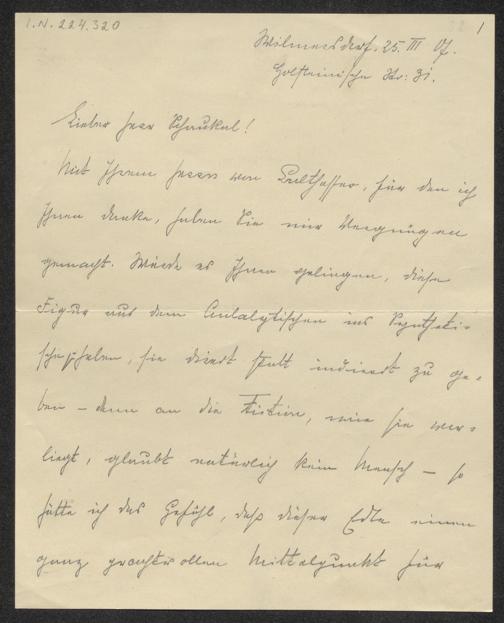 I.N. 224.320
1
Wilmersdorf. 25. III 07.
Holsteinische Str: 31.
Lieber Herr Schaukal!
Mit Ihrem Herrn von Balthesser, für den ich
Ihnen danke, haben Sie mir Vergnügen
gemacht. Würde es Ihnen gelingen, diese
Figur aus dem Analytischen ins Syntheti-
sche zu heben, sie direct statt indirect zu ge-
ben – denn an die Fiction, wie sie vor-
liegt, glaubt natürlich kein Mensch – so
hätte ich das Gefühl, daß dieser Edle einen
ganz prachtvollen Mittelpunkt für